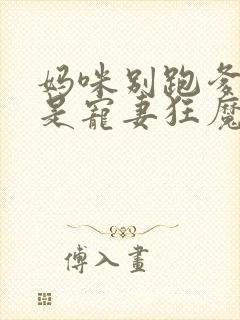 妈咪别跑爹
是宠妻狂魔
傅入画